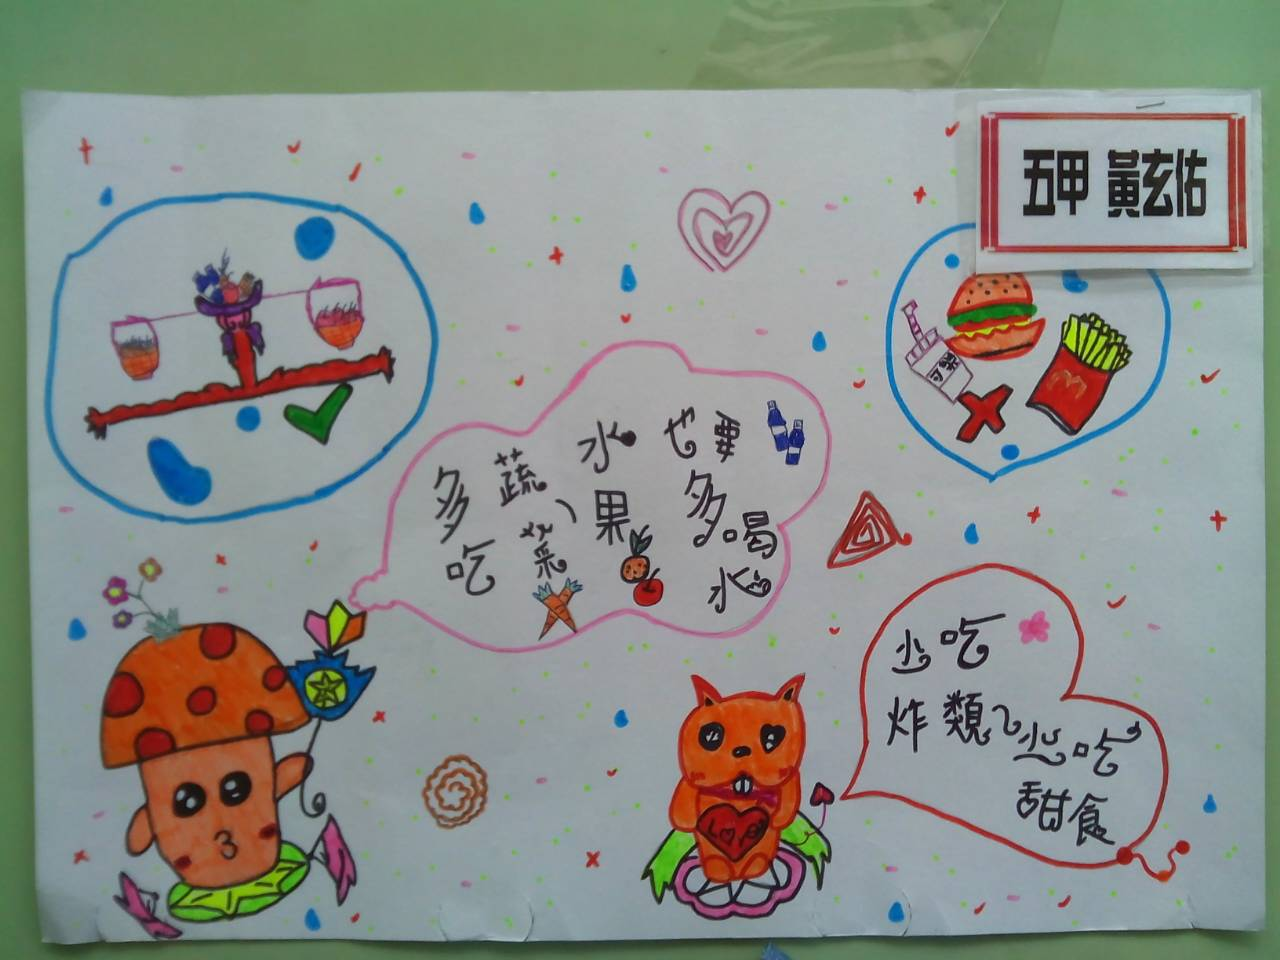 五甲 黃玄佑
可樂
多吃
蔬菜、
水果
也要
多喝水
少吃
炸類、少吃
甜食
Love